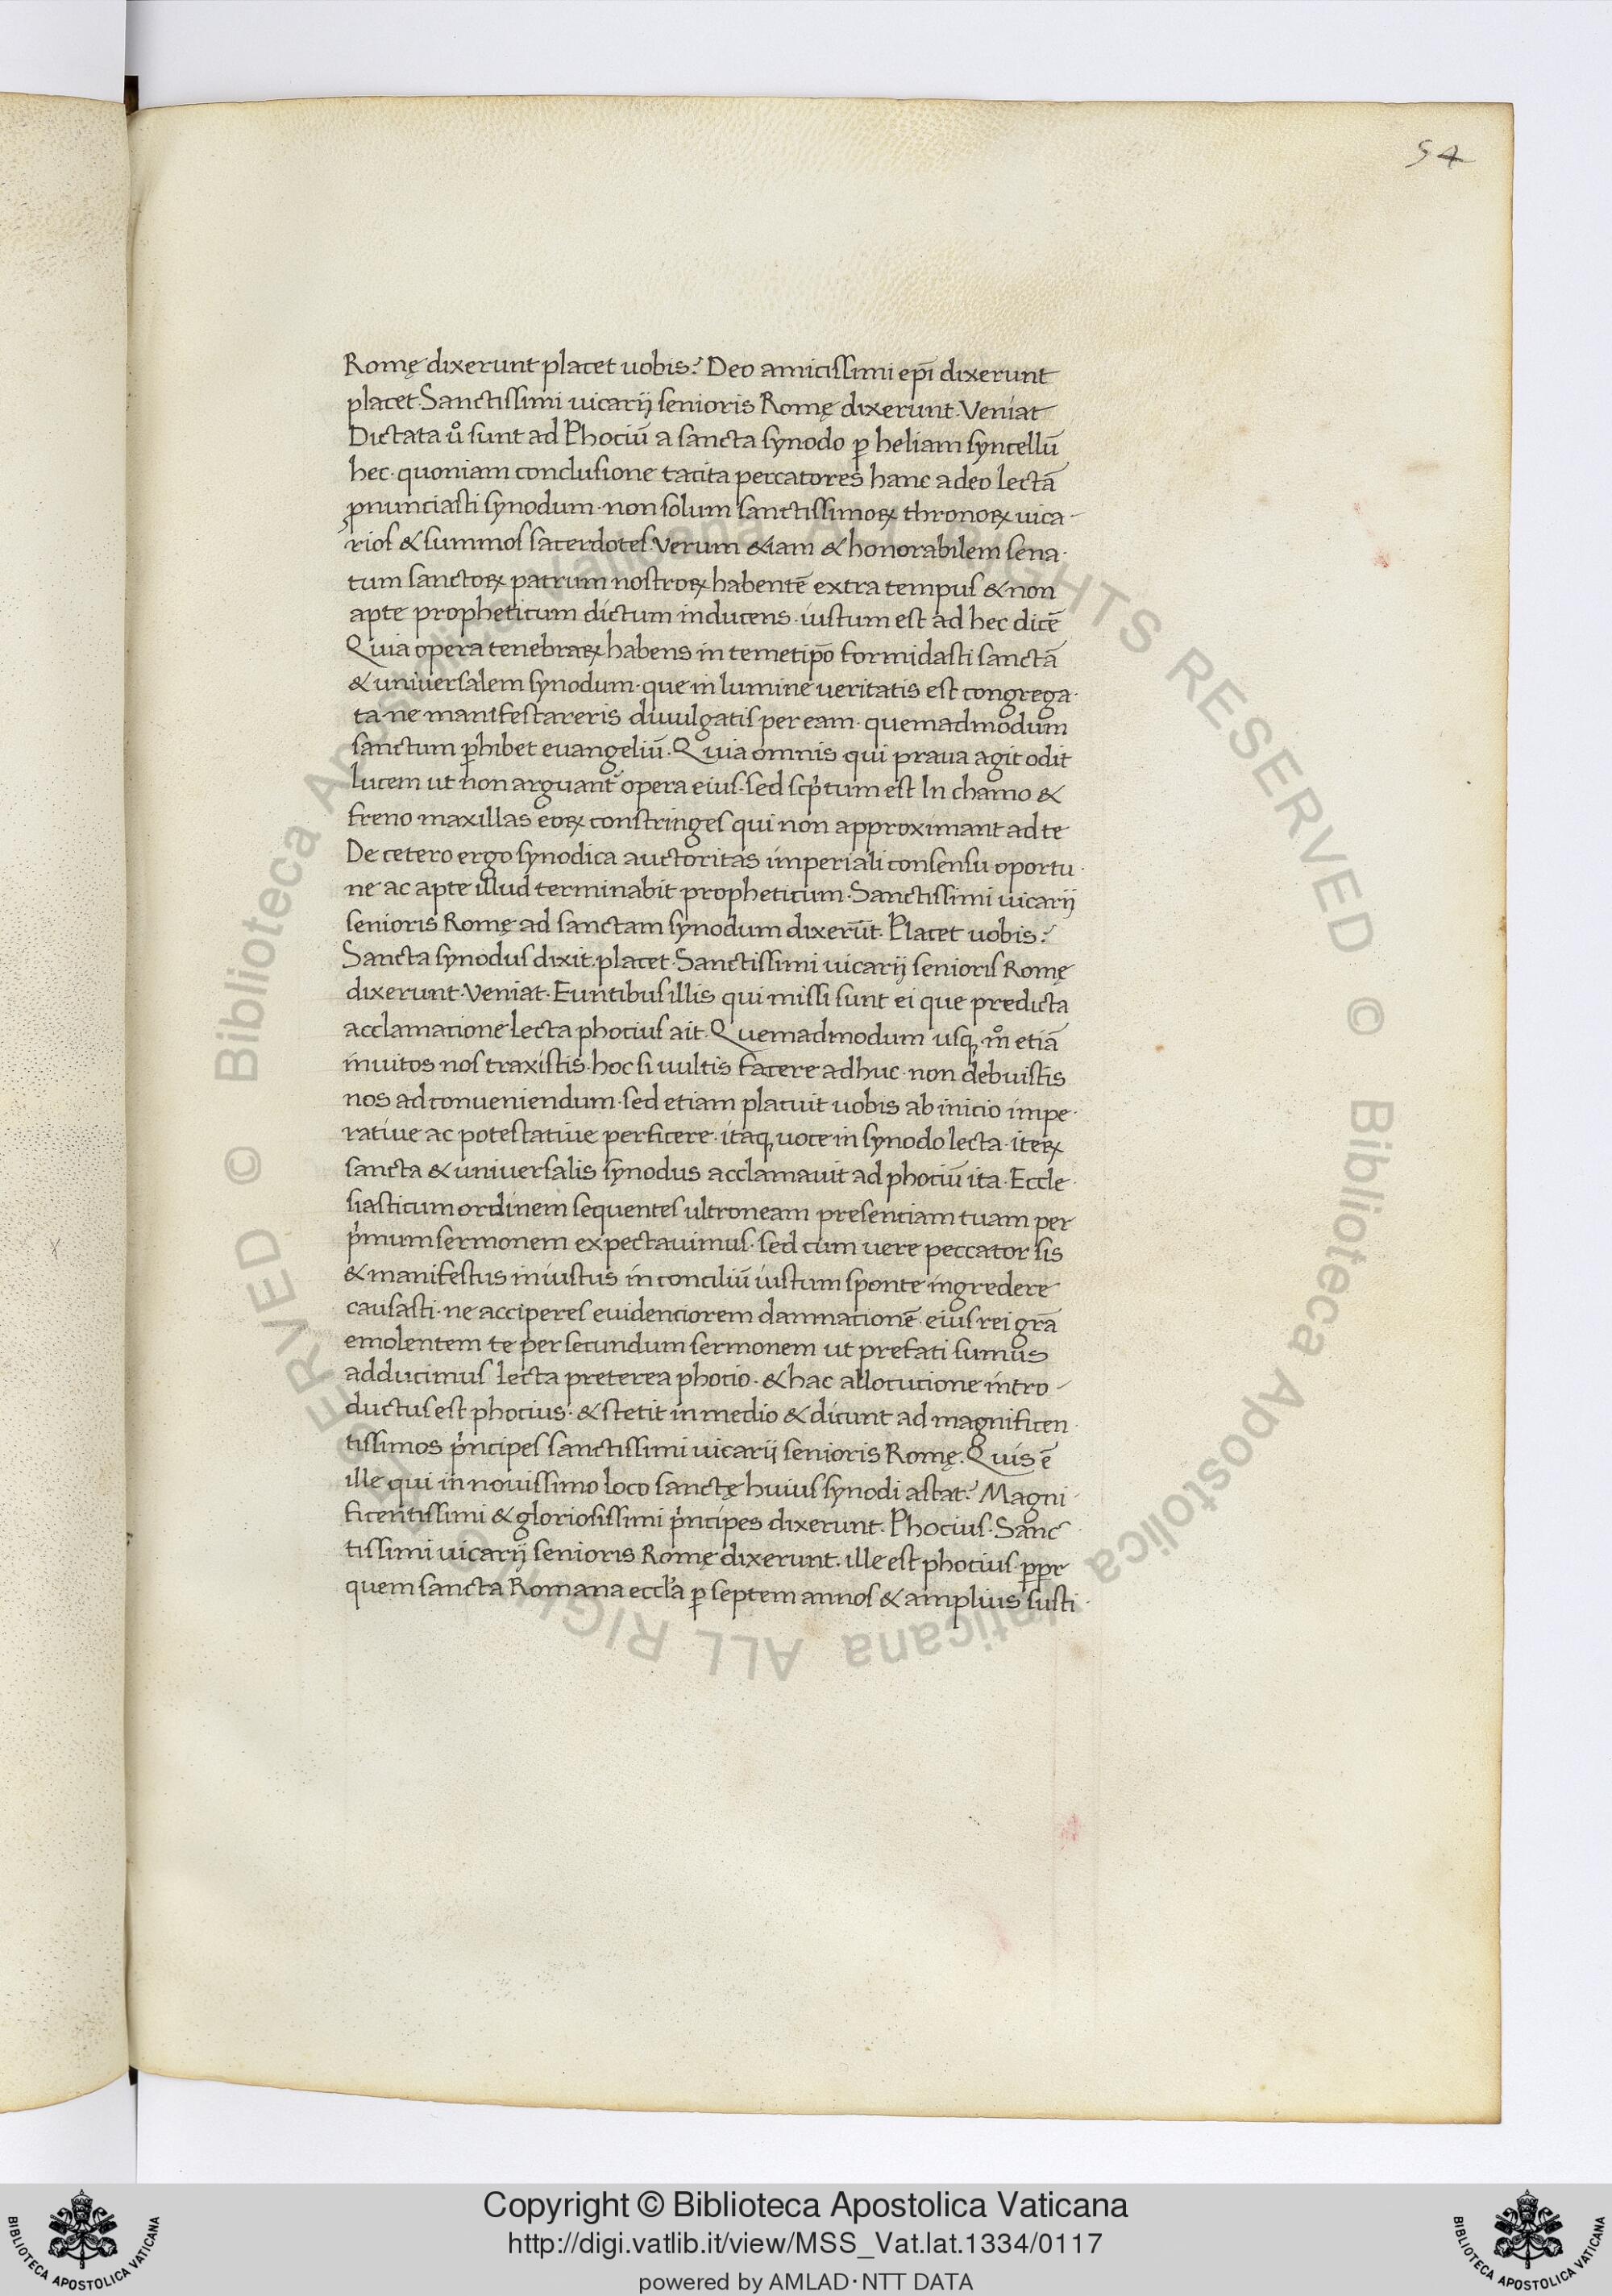 54
Romę dixerunt placet uobis? Deo amicissimi ep̅i dixerunt
placet. Sanctissimi uicarij senioris Romę dixerunt. Veniat
Dictata ů sunt ad Phociū a sancta synodo ꝑ heliam syncellū
hec. quoniam conclusione tacita peccatores hanc a deo lectā
ꝓnunciasti synodum. non solum sanctissimoꝝ thronoꝝ uica-
rios & summos sacerdotes. Verum &iam & honorabilem sena-
tum sanctoꝝ patrum nostroꝝ habentē extra tempus & non
apte propheticum dictum inducens. iustum est ad hec dicē
Quia opera tenebraꝝ habens in temetip̅o formidasti sanctā
& universalem synodum. que in lumine veritatis est congrega-
ta. ne manifestareris divulgatis per eam. quemadmodum
sanctum ꝑhibet evangeliū. Quia omnis qui praua agit odit
lucem ut non arguant᷑ opera eius. sed scp̍tum est In chamo &
freno maxillas eoꝝ constringes qui non approximant ad te
De cetero ergo synodica auctoritas imperiali consensu oportu-
ne ac apte illud terminabit propheticum. Sanctissimi uicarij
senioris Romę ad sanctam synodum dixerūt. Placet uobis?
Sancta synodus dixit. placet. Sanctissimi uicarij senioris Romę
dixerunt. Veniat. Euntibus illis qui missi sunt ei que predicta
acclamatione lecta phocius ait. Quemadmodum usqꝫ m̊ etiā
invitos nos traxistis. hoc si vultis facere adhuc. non debuistis
nos ad conveniendum. sed etiam placuit uobis ab inicio impe-
rative ac potestative perficere. itaqꝫ voce in synodo lecta. iteꝝ
sancta & universalis synodus acclamauit ad phociū ita. Eccle-
siasticum ordinem sequentes ultroneam presentiam tuam per
p̍mum sermonem expectavimus. sed cum uere peccator sis
& manifestus iniustus in conciliū iustum sponte ingredere
causasti. ne acciperes evidenciorem damnationē. eius rei gr̅a
emolentem te per secundum sermonem ut prefati sumus
adducimus lecta preterea phocio. & hac allocutione intro-
ductus est phocius. & stetit in medio & dicunt ad magnificen-
tissimos p̍ncipes sanctissimi uicarij senioris Romę. Quis ē
ille qui in novissimo loco sanctę huius synodi astat? Magni-
ficentissimi & gloriosissimi p̍ncipes dixerunt. Phocius. Sanc-
tissimi uicarij senioris Romę dixerunt. ille est phocius. ꝓpt̅
quem sancta Romana eccl̅a ꝑ septem annos & amplius susti-
© Biblioteca Apostolica Vaticana ALL RIGHTS RESERVED © Biblioteca Apostolica Vaticana ALL RIGHTS RESERVED
Copyright © Biblioteca Apostolica Vaticana
http://digi.vatlib.it/view/MSS_Vat.lat.1334/0117
powered by AMLAD·NTT DATA
BIBLIOTECA APOSTOLICA VATICANA
BIBLIOTECA APOSTOLICA VATICANA